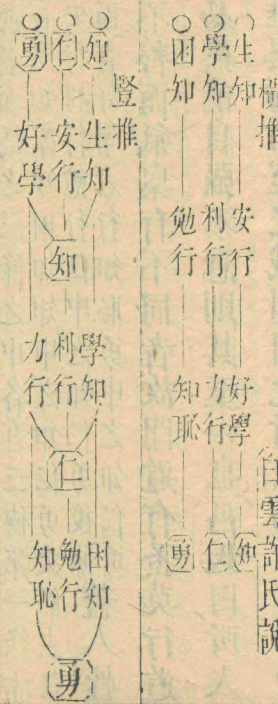 白雲許氏說
橫推
○生知 安行 好學 知
○學知 利行 力行 仁
○困知 勉行 知恥 勇
豎推
○知 生知 學知 困知
○仁 安行 利行 勉行
○勇 好學 力行 知恥
知 仁 勇